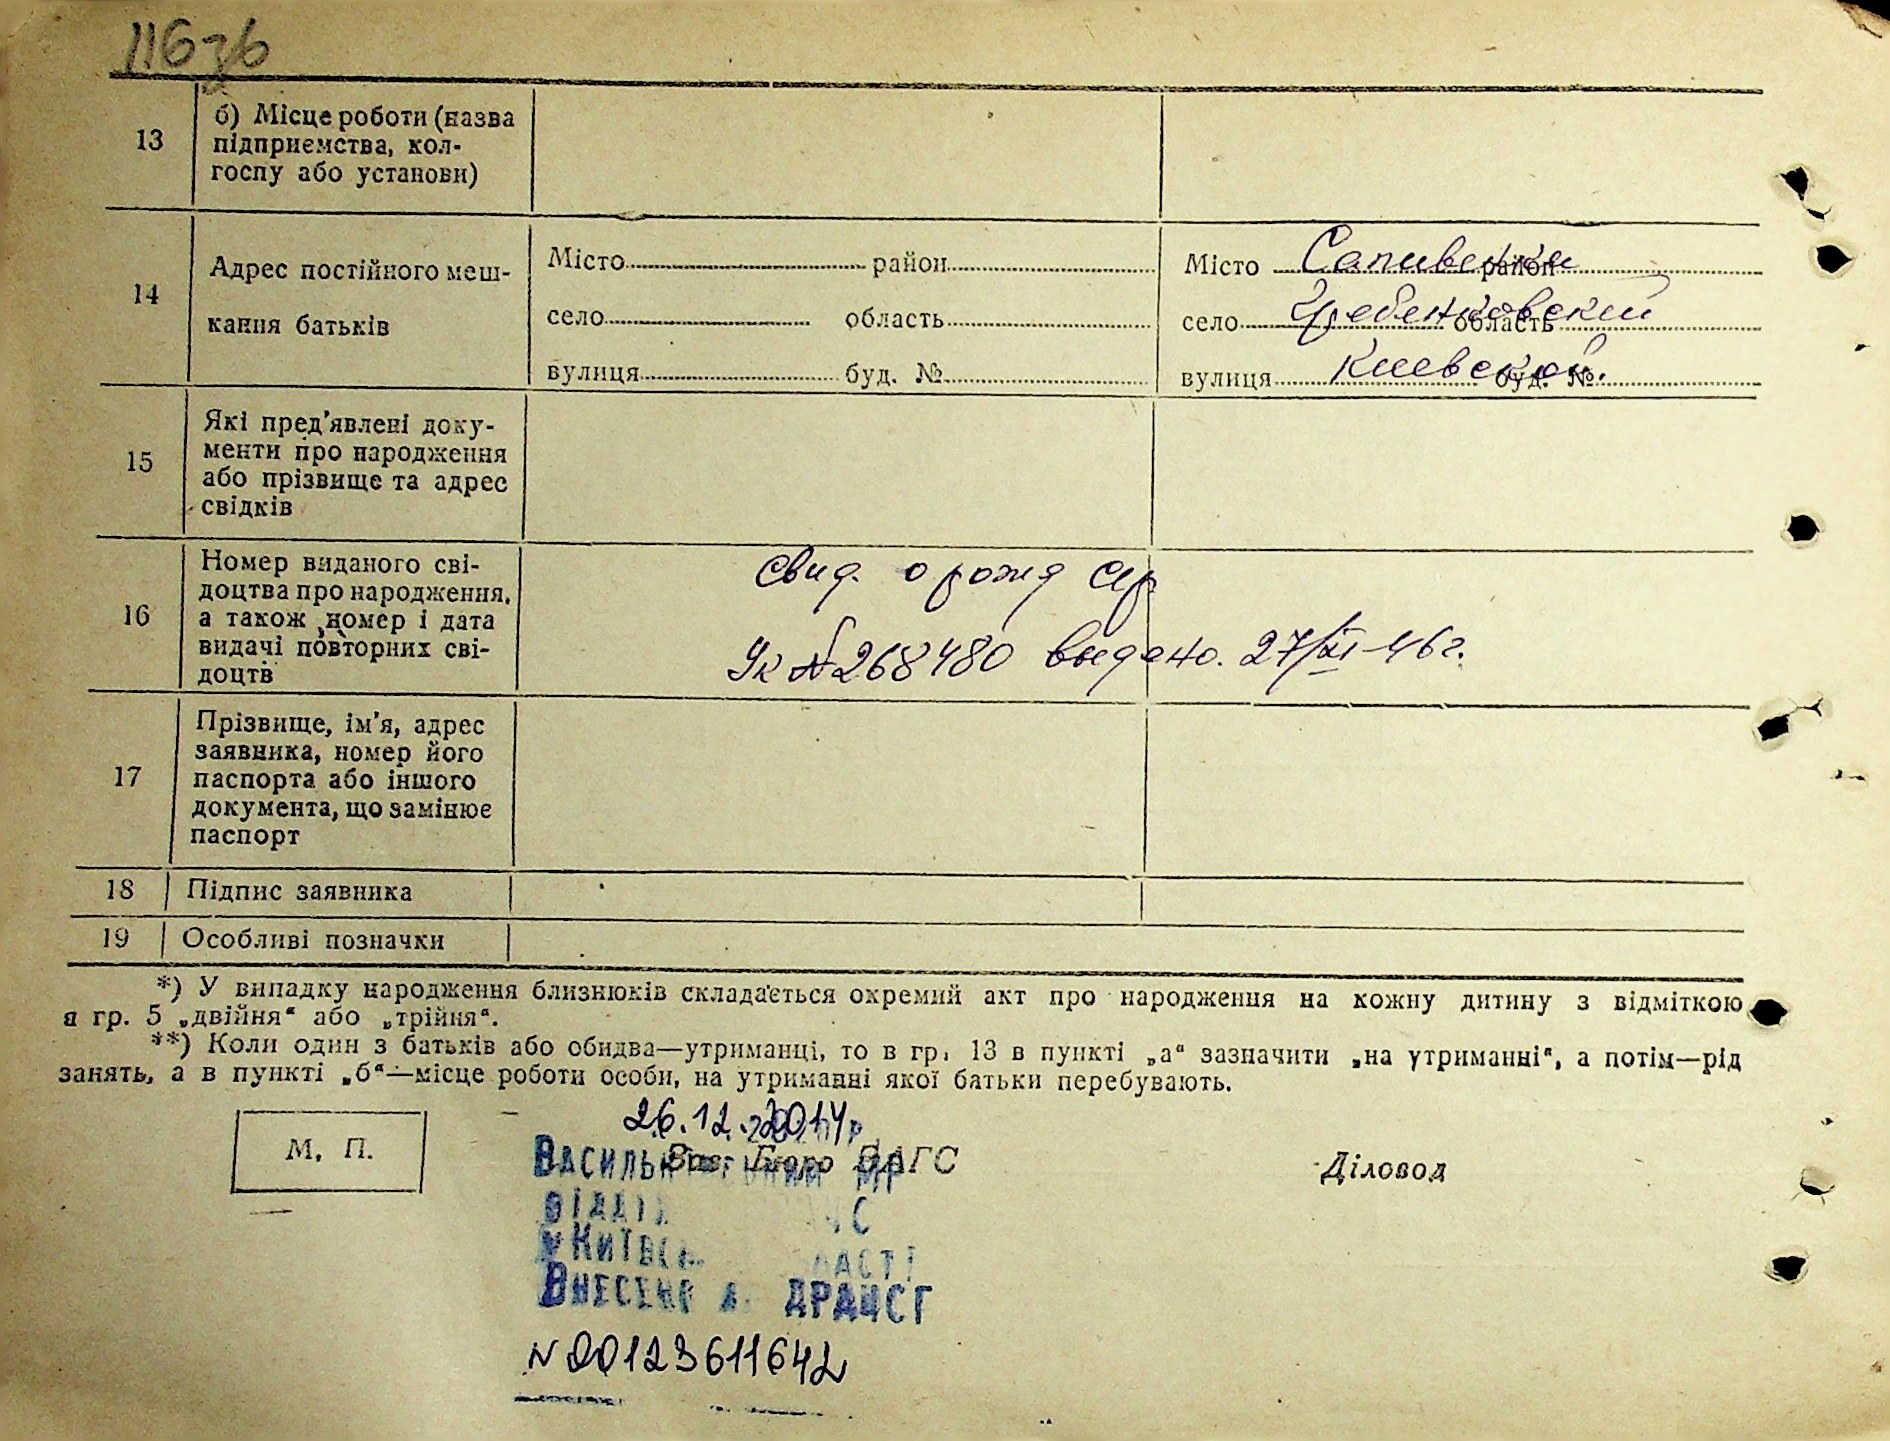 116 зв
13
б) Місце роботи (назва
підприємства, кол-
госпу або установи)
14
Адрес постійного меш-
кання батьків
Місто район
село область
вулиця буд. №
Місто Саливенки район
село Гребенковский область
вулиця Киевской. буд. №
15
Які пред'явлені доку-
менти про народження
або прізвище та адрес
свідків
16
Номер виданого сві-
доцтва про народження,
а також номер і дата
видачі повторних сві-
доцтв
Свид. о рожд
№ 268480 выдано. 27/XI-46 г.
17
Прізвище, ім'я, адрес
заявника, номер його
паспорта або іншого
документа, що замінює
паспорт
18 Підпис заявника
19 Особливі позначки
*) У випадку народження близнюків складається окремий акт про народження на кожну дитину з відміткою
в гр. 5 „двійня“ або „трійня“.
**) Коли один з батьків або обидва—утриманці, то в гр. 13 в пункті „а“ зазначити „на утриманні“, а потім—рід
занять, а в пункті „б“—місце роботи особи, на утриманні якої батьки перебувають.
М. П.
26.12.2014р.
Зав. Бюро ЗАГС
Діловод
ДРАЦСГ
N 00123611642